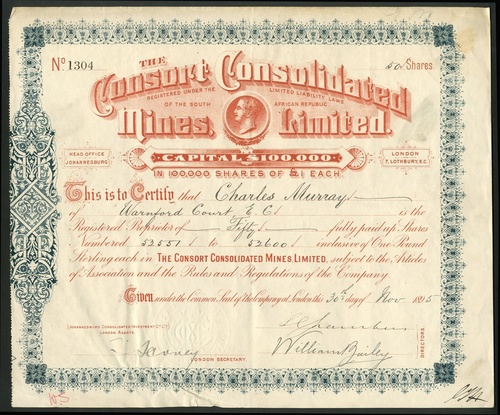 No 1304
50 Shares
THE
Consort Consolidated
REGISTERED UNDER THE LIMITED LIABILITY LAWS
OF THE SOUTH AFRICAN REPUBLIC
Mines, Limited.
CAPITAL £100,000
IN 100,000 SHARES OF £1 EACH
HEAD OFFICE
JOHANNESBURG
LONDON
7, LOTHBURY, E.C.
This is to Certify that Charles Murray
of Warnford Court, E.C. is the
Registered Proprietor of Fifty fully paid up Shares
Numbered 52551 to 52600 inclusive of One Pound
Sterling each in THE CONSORT CONSOLIDATED MINES, LIMITED, subject to the Articles
of Association and the Rules and Regulations of the Company.
Given under the Common Seal of the Company at London this 30th day of Nov 1895
JOHANNESBURG CONSOLIDATED INVESTMENT Co Ld
LONDON AGENTS.
LONDON SECRETARY.
William Bailey
DIRECTORS.